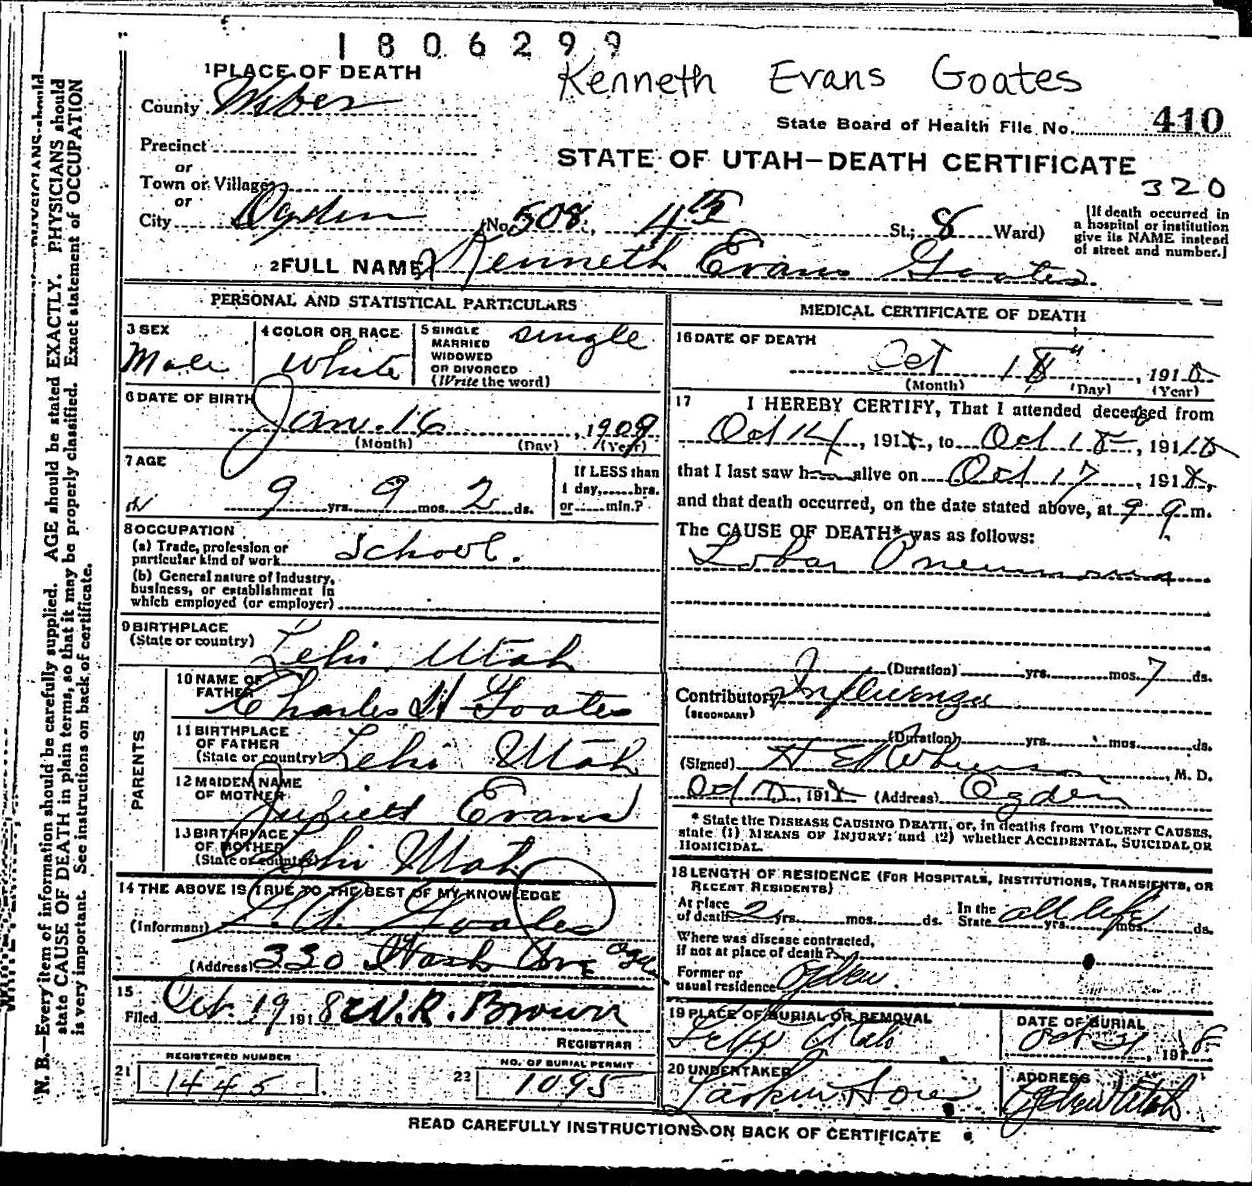 1806299
Kenneth Evans Goates
1 PLACE OF DEATH
County Weber
State Board of Health File No. 410
Precinct
or
STATE OF UTAH—DEATH CERTIFICATE
Town or Village
320
or
City Ogden (No. 508, 4th St.; 8 Ward)
[If death occurred in
a hospital or institution
give its NAME instead
of street and number.]
2 FULL NAME Kenneth Evans Goates
PERSONAL AND STATISTICAL PARTICULARS
3 SEX
Male
4 COLOR OR RACE
White
5 SINGLE
MARRIED
WIDOWED
OR DIVORCED
(Write the word)
single
6 DATE OF BIRTH
Jan. 16, 1909
(Month) (Day) (Year)
7 AGE
9 yrs. 9 mos. 2 ds.
If LESS than
1 day,......hrs.
or......min.?
8 OCCUPATION
(a) Trade, profession or
particular kind of work School.
(b) General nature of Industry,
business, or establishment in
which employed (or employer)
9 BIRTHPLACE
(State or country) Lehi, Utah
PARENTS
10 NAME OF
FATHER Charles H Goates
11 BIRTHPLACE
OF FATHER
(State or country) Lehi Utah
12 MAIDEN NAME
OF MOTHER Evans
13 BIRTHPLACE
OF MOTHER
(State or country) Lehi Utah
14 THE ABOVE IS TRUE TO THE BEST OF MY KNOWLEDGE
(Informant) Goates
(Address) 330 Wash Ave
15
Filed Oct. 19 1918 W. R. Brown
REGISTRAR
21 REGISTERED NUMBER
1445
22 NO. OF BURIAL PERMIT
1095
MEDICAL CERTIFICATE OF DEATH
16 DATE OF DEATH
Oct 18, 1918
(Month) (Day) (Year)
17 I HEREBY CERTIFY, That I attended deceased from
Oct 14, 1918, to Oct 18, 1918
that I last saw h alive on Oct 17, 1918,
and that death occurred, on the date stated above, at 9 m.
The CAUSE OF DEATH* was as follows:
Lobar Pneumonia
(Duration) yrs. mos. 7 ds.
Contributory Influenza
(SECONDARY)
(Duration) yrs. mos. ds.
(Signed) H E Robinson, M. D.
Oct, 1918 (Address) Ogden
* State the DISEASE CAUSING DEATH, or, in deaths from VIOLENT CAUSES,
state (1) MEANS OF INJURY; and (2) whether ACCIDENTAL, SUICIDAL OR
HOMICIDAL.
18 LENGTH OF RESIDENCE (FOR HOSPITALS, INSTITUTIONS, TRANSIENTS, OR
RECENT RESIDENTS)
At place
of death 2 yrs. mos. ds. In the
State all life yrs. mos. ds.
Where was disease contracted,
if not at place of death?
Former or
usual residence Ogden
19 PLACE OF BURIAL OR REMOVAL
Lehi Utah
DATE OF BURIAL
Oct 21, 1918
20 UNDERTAKER
Larkin & Sons
ADDRESS
Ogden Utah
READ CAREFULLY INSTRUCTIONS ON BACK OF CERTIFICATE
N. B.—Every item of information should be carefully supplied. AGE should be stated EXACTLY. PHYSICIANS should
state CAUSE OF DEATH in plain terms, so that it may be properly classified. Exact statement of OCCUPATION
is very important. See instructions on back of certificate.